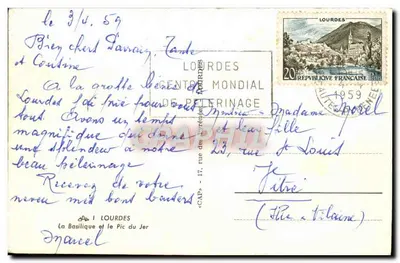 le 3/4. 59
Bien chers Parrain, Tante
et Cousine
A la grotte bénie de
Lourdes j'ai prié pour vous
tous. Avons un temps
magnifique qui donne
une splendeur à notre
beau pèlerinage
Recevez de votre
neveu mes bons baisers
I LOURDES
La Basilique et le Pic du Jer
Marcel
LOURDES
CENTRE MONDIAL
DE PELERINAGE
LOURDES
20F
REPUBLIQUE FRANCAISE
1959
«CAP» - 17, rue des
LOURDES
Monsieur Madame Morel
et leur fille
23, rue St Louis
Vitré
(Ille et Vilaine)